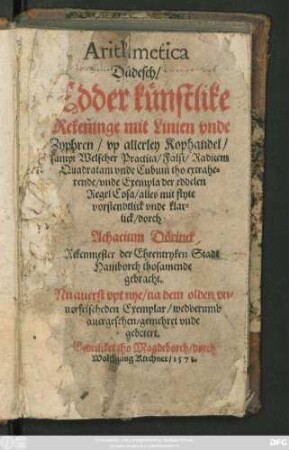 Arithmetica
Düdesch/
Edder künstlike
Rekeninge mit Linien vnde
Zyphren / vp allerley Kophandel/
sampt Welscher Practica/ Falsi/ Radicem
Quadratam vnde Cubicam tho extrahe-
rende/ vnde Exempla der eddelen
Regel Cosa/ alles mit flyte
vorstendtlick vnde klar-
lick/ dorch
Achacium Dörinck
Rekenmester der Ehrentryken Stadt
Hamborch thosamende
gebracht.
Nu auerst vpt nye/ na dem olden vn-
uorfelscheden Exemplar/ wedderumb
auergeschen/ gemehret vnde
gebetert.
Gedrücket tho Magdeborch/ dorch
Wolffgang Kirchner/ 157